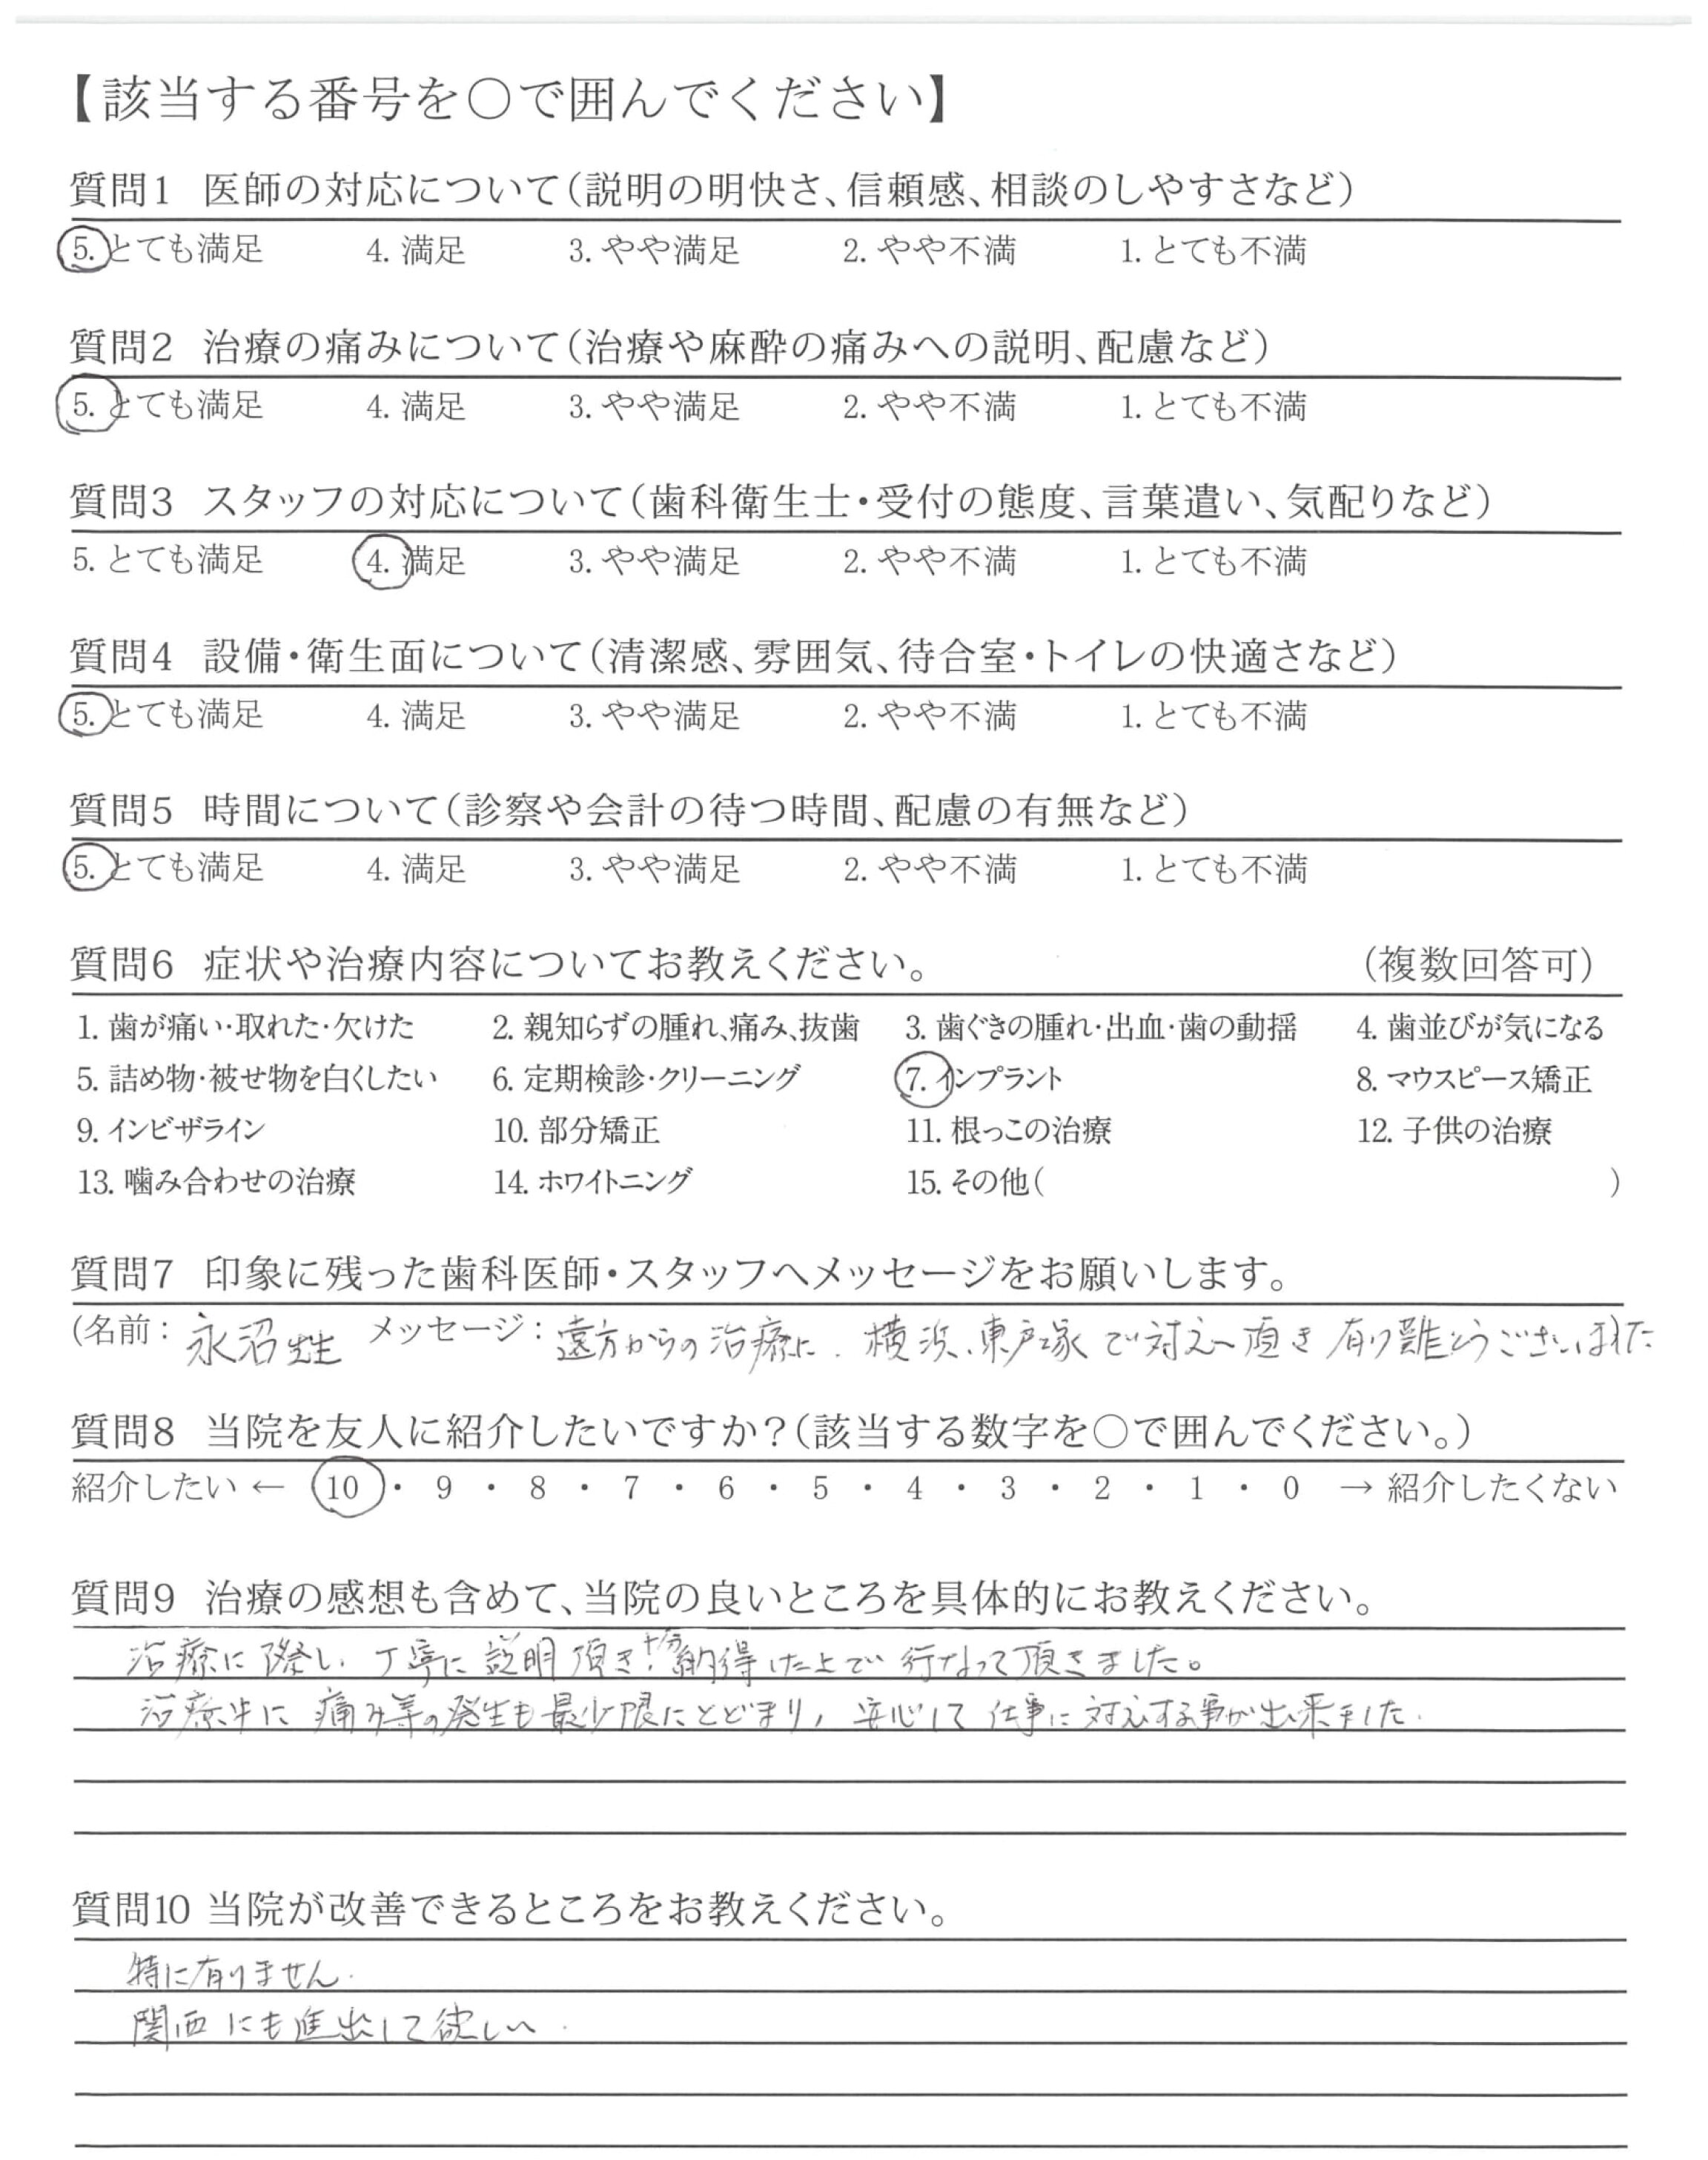 【該当する番号を○で囲んでください】
質問1 医師の対応について(説明の明快さ、信頼感、相談のしやすさなど)
5. とても満足 4. 満足 3. やや満足 2. やや不満 1. とても不満
質問2 治療の痛みについて(治療や麻酔の痛みへの説明、配慮など)
5. とても満足 4. 満足 3. やや満足 2. やや不満 1. とても不満
質問3 スタッフの対応について(歯科衛生士・受付の態度、言葉遣い、気配りなど)
5. とても満足 4. 満足 3. やや満足 2. やや不満 1. とても不満
質問4 設備・衛生面について(清潔感、雰囲気、待合室・トイレの快適さなど)
5. とても満足 4. 満足 3. やや満足 2. やや不満 1. とても不満
質問5 時間について(診察や会計の待つ時間、配慮の有無など)
5. とても満足 4. 満足 3. やや満足 2. やや不満 1. とても不満
質問6 症状や治療内容についてお教えください。 (複数回答可)
1. 歯が痛い・取れた・欠けた 2. 親知らずの腫れ、痛み、抜歯 3. 歯ぐきの腫れ・出血・歯の動揺 4. 歯並びが気になる
5. 詰め物・被せ物を白くしたい 6. 定期検診・クリーニング 7. インプラント 8. マウスピース矯正
9. インビザライン 10. 部分矯正 11. 根っこの治療 12. 子供の治療
13. 噛み合わせの治療 14. ホワイトニング 15. その他( )
質問7 印象に残った歯科医師・スタッフへメッセージをお願いします。
(名前: 永沼先生 メッセージ: 遠方からの治療に、横浜、東戸塚で対応頂き有り難とうございました
質問8 当院を友人に紹介したいですか?(該当する数字を○で囲んでください。)
紹介したい ← 10 ・ 9 ・ 8 ・ 7 ・ 6 ・ 5 ・ 4 ・ 3 ・ 2 ・ 1 ・ 0 → 紹介したくない
質問9 治療の感想も含めて、当院の良いところを具体的にお教えください。
治療に際し、丁寧に説明頂き、十分納得した上で行なって頂きました。
治療中に痛み等の発生も最少限にとどまり、安心して仕事に対応する事が出来ました.
質問10 当院が改善できるところをお教えください。
特に有りません.
関西にも進出して欲しい.